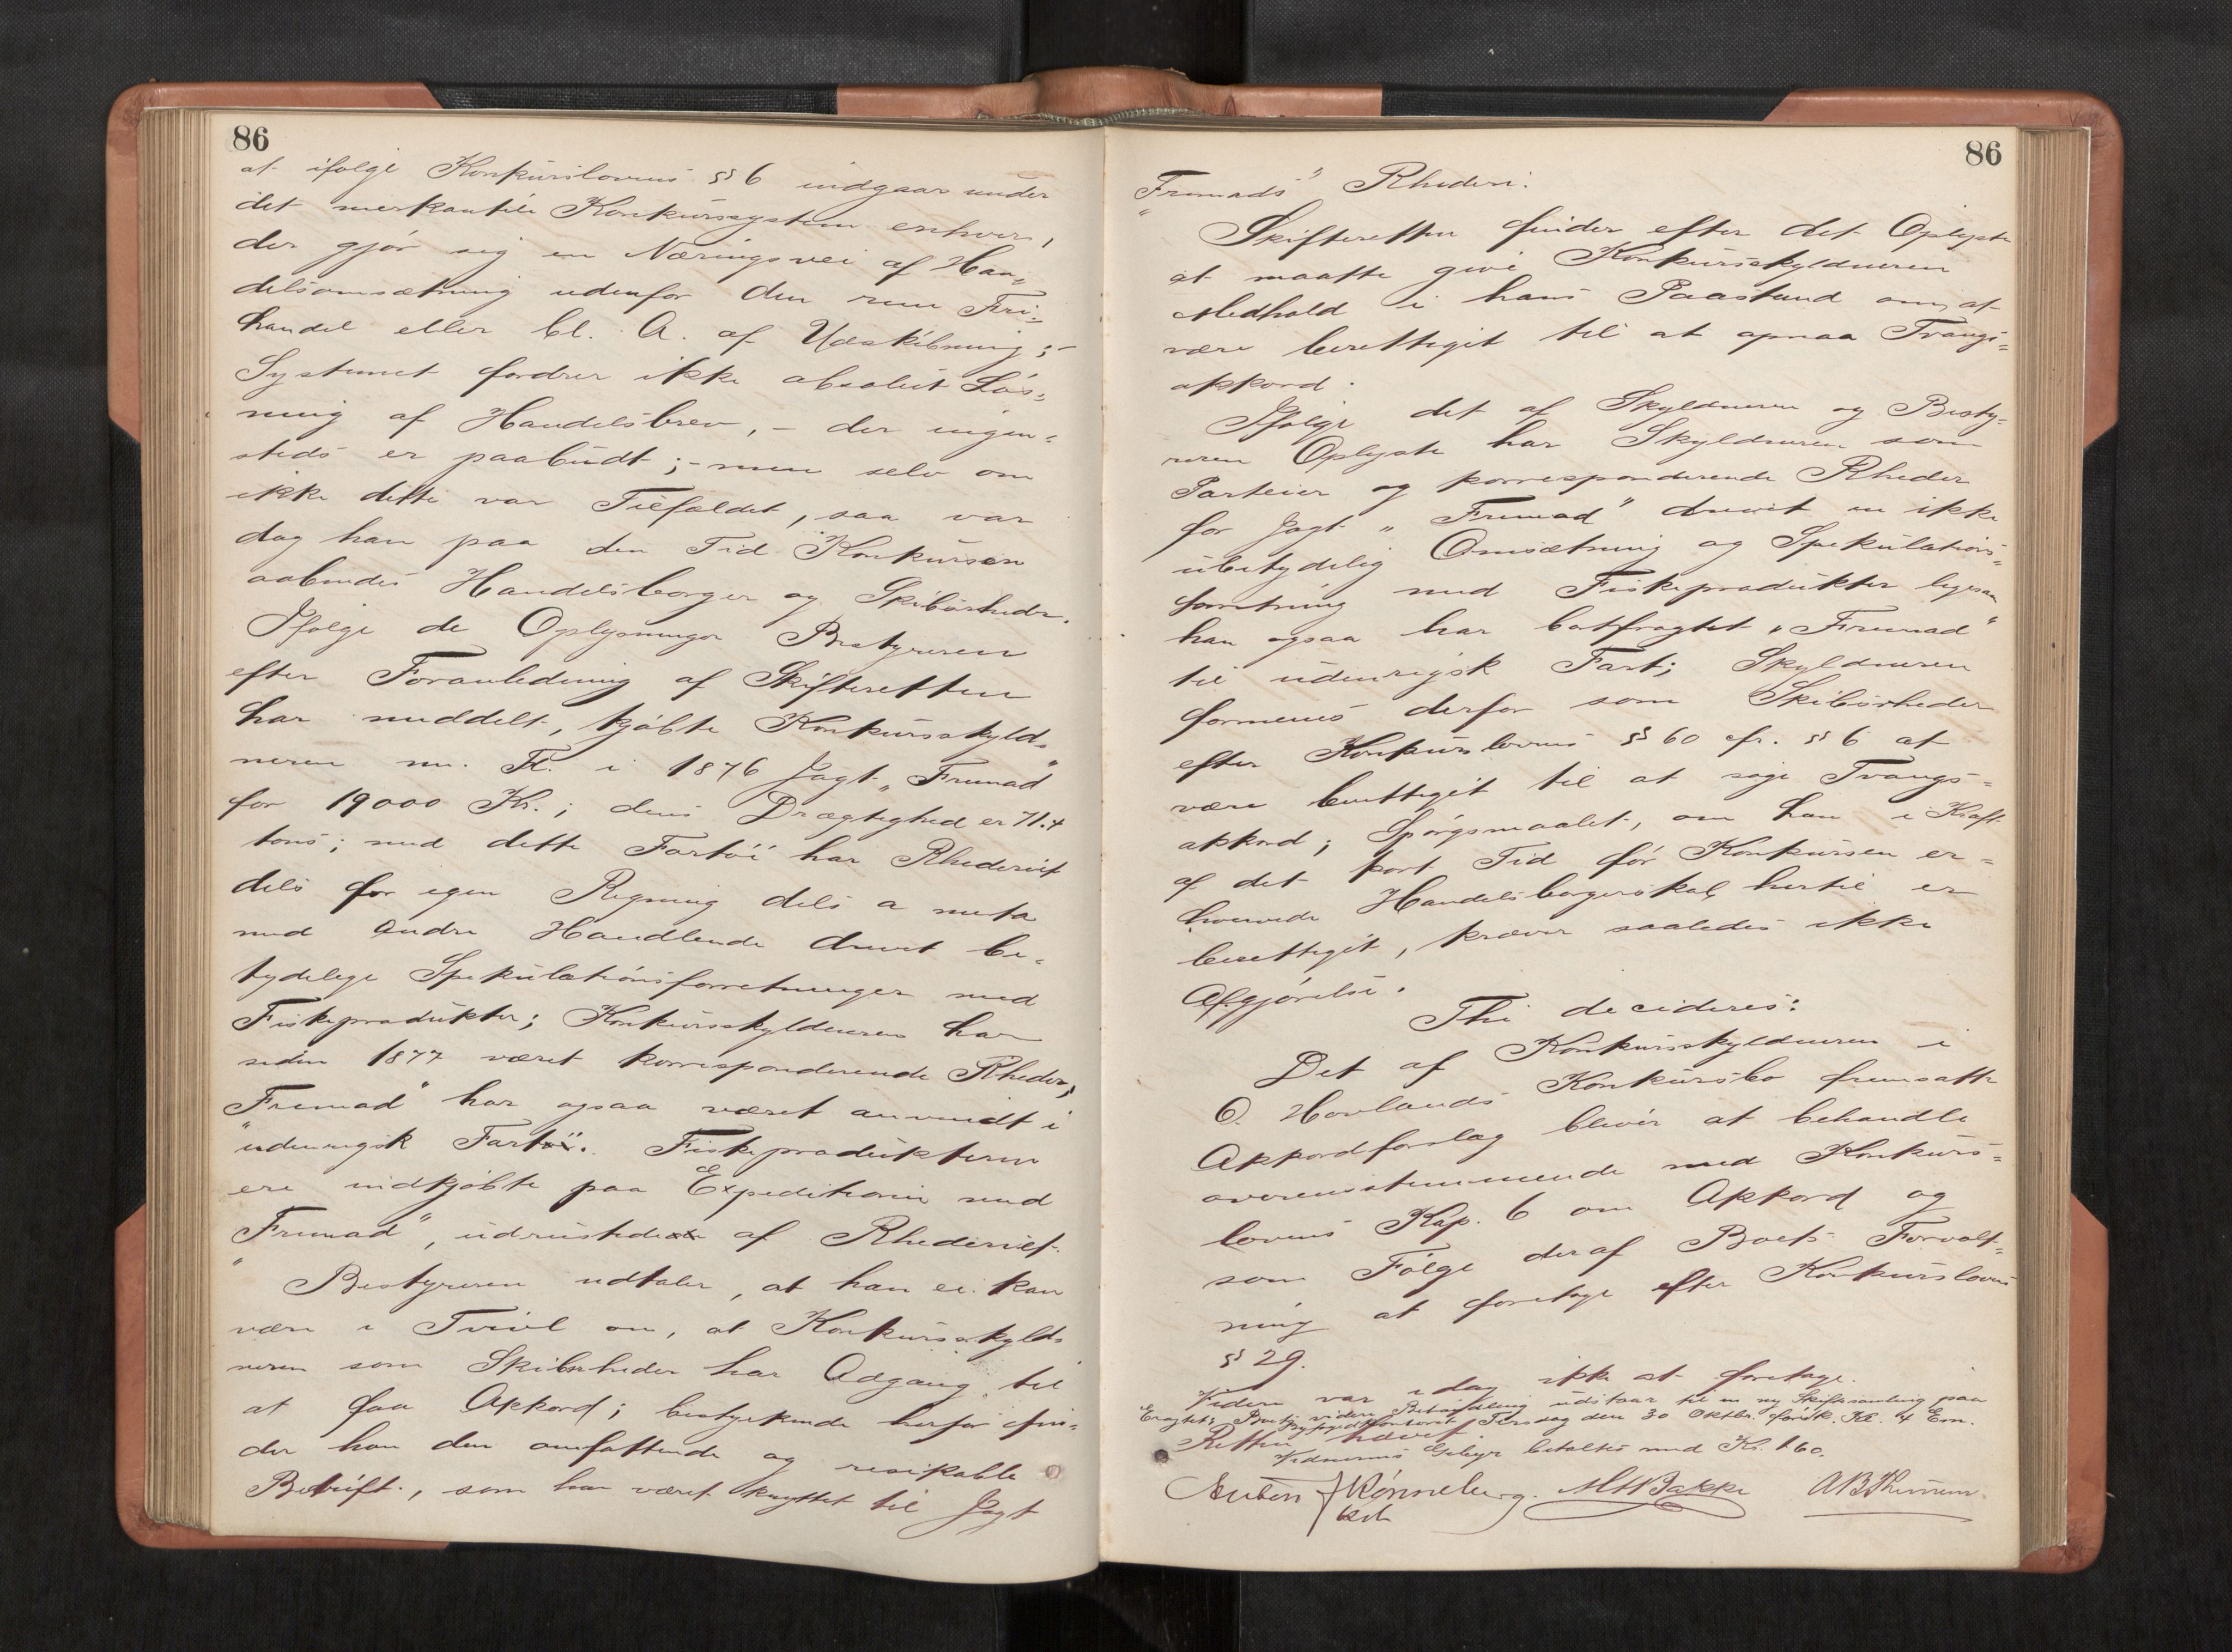 86
at ifølge Konkurslovens §§ 6 indgaar under
det merkantile Konkurssystem enhver,
der gjør sig en Næringsvei af Han„
delsomsætning udenfor den rene Fri„
handel eller bl. A. af Udskibning; -
Systemet fordrer ikke absolut Løs„
ning af Handelsbrev, - der ingen„
steds er paabudt; - men selv om
ikke dette var Tilfældet, saa var
dog han paa den Tid Konkursen
aabnedes Handelsborger og Skibsrheder.
Ifølge de Oplysninger Bestyreren
efter Foranledning af Skifteretten
har meddelt, kjøbte Konkursskyld„
neren m. Fl. i 1876 Jagt „Fremad"
for 19000 Kr.; dens Drægtighed er 71.4
tons; med dette Fartøi har Rhederiet
dels for egen Regning dels a meta
med andre Handlende drevet be„
tydelige Spekulationsforretninger med
Fiskeprodukter; Konkursskyldneren har
siden 1877 været korresponderende Rheder;
„Fremad" har ogsaa været anvendt i
udenrigsk Fart. Fiskeprodukterne
ere indkjøbte paa Expeditioner med
„Fremad", udrustede af Rhederiet.
Bestyreren udtaler, at han ei kan
være i Tvivl om, at Konkursskyld„
neren som Skibsrheder har Adgang til
at faa Akkord; bestyrkende herfor fin„
der han den omfattende og resikable
Bedrift, som har været knyttet til Jagt
86
„Fremads" Rhederi.
Skifteretten finder efter det Oplyste
at maatte give Konkursskyldneren
Medhold i hans Paastand om, at
være berettiget til at opnaa Tvangs„
akkord.
Ifølge det af Skyldneren og Besty„
reren Oplyste har Skyldneren som
Parteier og korresponderende Rheder
for Jagt „Fremad" drevet en ikke
ubetydelig Omsætning og Spekulations„
forretning med Fiskeprodukter ligesom
han ogsaa har bortfragtet „Fremad"
til udenrigsk Fart; Skyldneren
formenes derfor som Skibsrheder
efter Konkurslovens §§ 60 cfr. §§ 6 at
være berettiget til at søge Tvangs„
akkord; Spørgsmaalet, om han i Kraft
af det kort Tid før Konkursen er„
hvervede Handelsborgerskab hertil er
berettiget, kræver saaledes ikke
Afgjørelse.
Thi decideres:
Det af Konkursskyldneren i
O. Hovlands Konkursbo fremsatte
Akkordforslag bliver at behandle
overensstemmende med Konkurs„
lovens Kap. 6 om Akkord og
som Følge deraf Boets Forvalt„
ning at foretage efter Konkurslovens
§ 29.
Videre var idag ikke at foretage.
Eragtet: Boets videre Behandling udstaar til en ny Skiftesamling paa
Tirsdag den 30 Oktbr. førstk. Kl. 4 Em.
Retten hævet
Vidnernes Gebyr betaltes med Kr. 1.60.
Rønneberg. Bakke